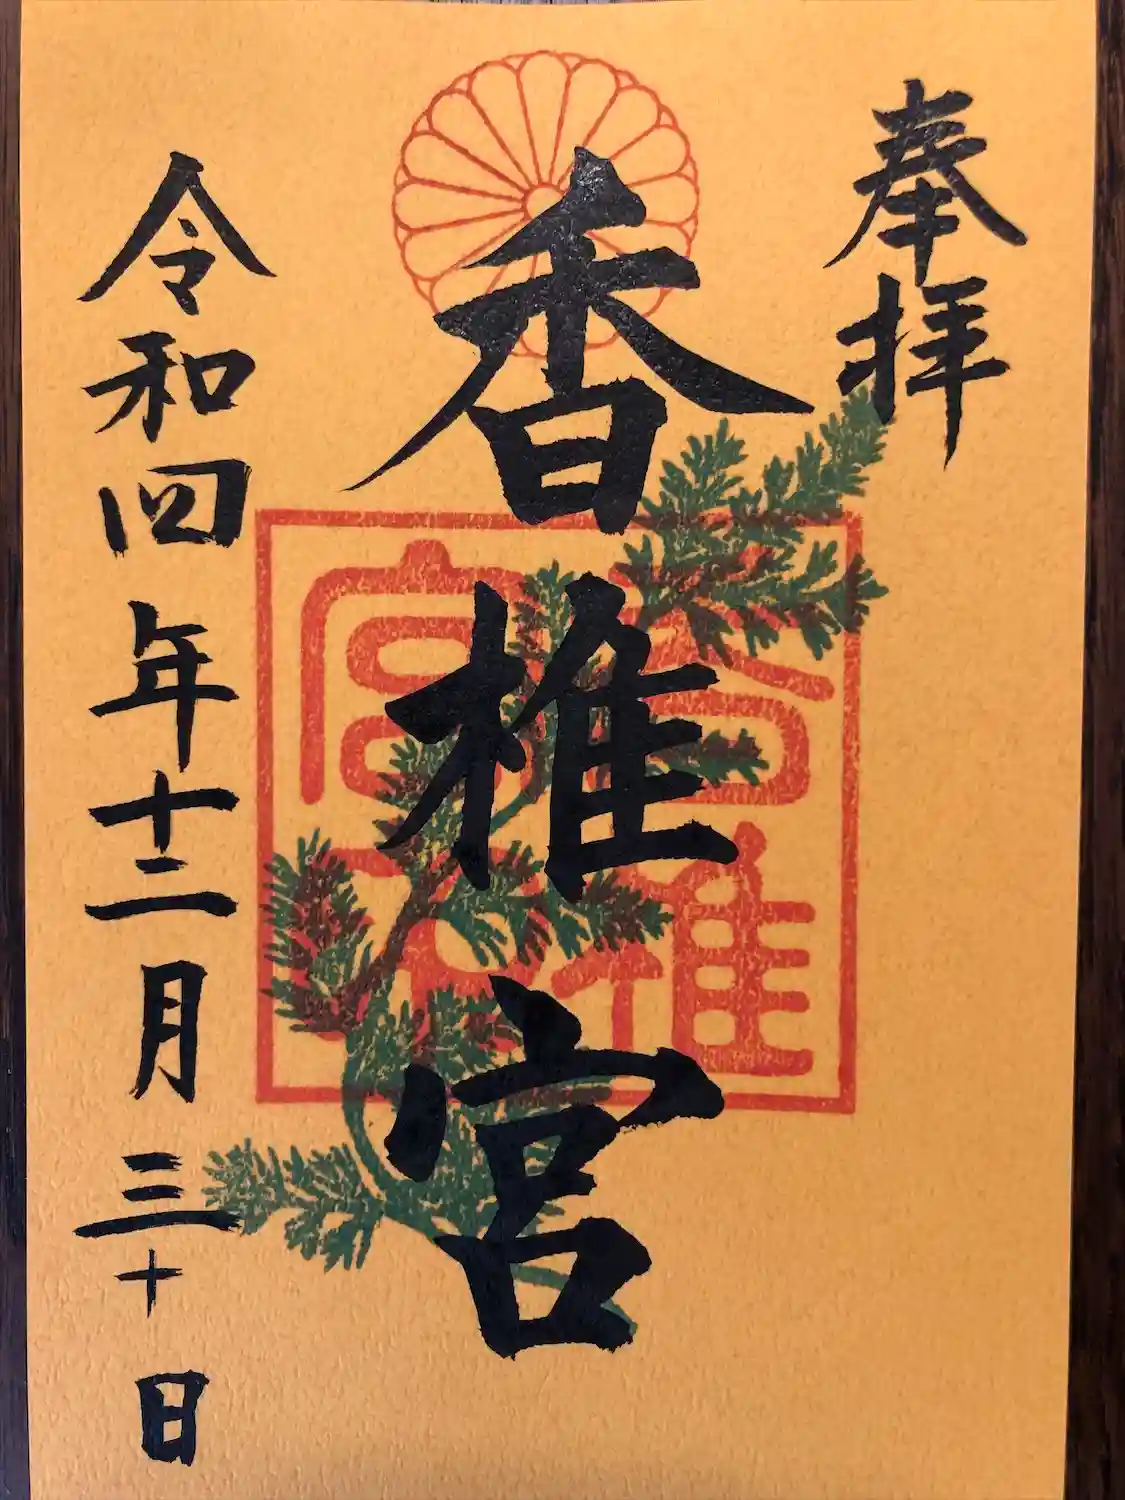 奉拝
香椎宮
香椎宮印
令和四年十二月三十日